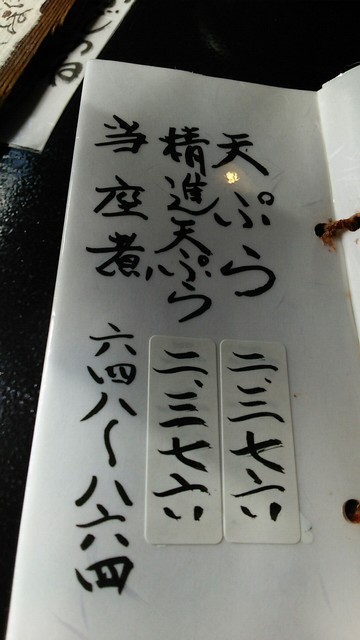 天ぷら 二、三七六
精進天ぷら 二、三七六
当座煮 六四八〜八六四